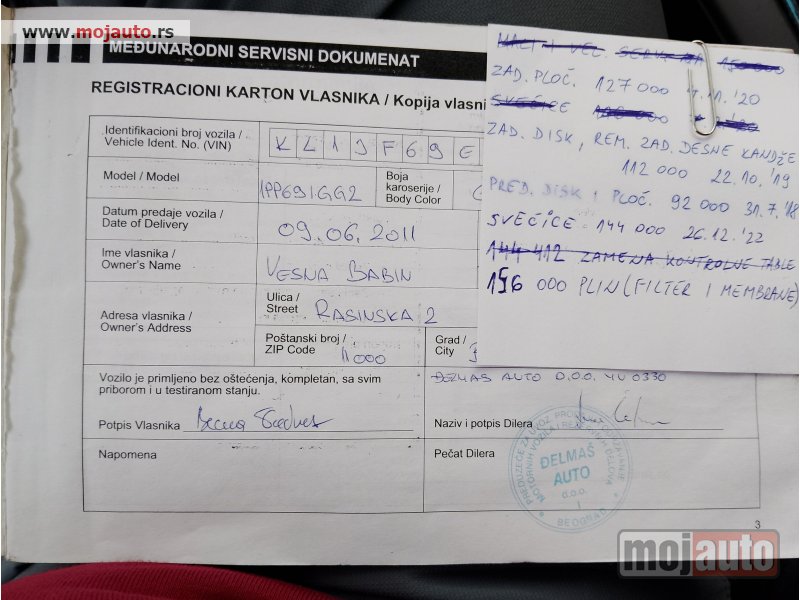 www.mojauto.rs
MEĐUNARODNI SERVISNI DOKUMENAT
REGISTRACIONI KARTON VLASNIKA / Kopija vlasni
Identifikacioni broj vozila /
Vehicle Ident. No. (VIN)
K L 1 J F 6 9 E
Model / Model
1PP69IGG2
Boja
karoserije /
Body Color
Datum predaje vozila /
Date of Delivery
09.06.2011
Ime vlasnika /
Owner's Name
VESNA BABIN
Adresa vlasnika /
Owner's Address
Ulica /
Street
RASINSKA 2
Poštanski broj /
ZIP Code
11000
Grad /
City
Vozilo je primljeno bez oštećenja, kompletan, sa svim
priborom i u testiranom stanju.
Potpis Vlasnika
DELMAS AUTO D.O.O. YU 0330
Naziv i potpis Dilera
Napomena
Pečat Dilera
PREDUZEĆE ZA UVOZ
MOTORNIH VOZILA I REZERVNIH DELOVA
DELMAŠ
AUTO
d.o.o.
1
BEOGRAD
3
MALI I VEL. SERVIS
ZAD. PLOČ. 127 000 '20
SVEĆICE
ZAD. DISK, REM. ZAD. DESNE KANDŽE
112 000 22.10.'19
PRED. DISK I PLOČ. 92 000 31.7.'18
SVEĆICE 144 000 26.12.'22
144 412 ZAMENA KONTROLNE TABLE
156 000 PLIN (FILTER I MEMBRANE)
mojauto